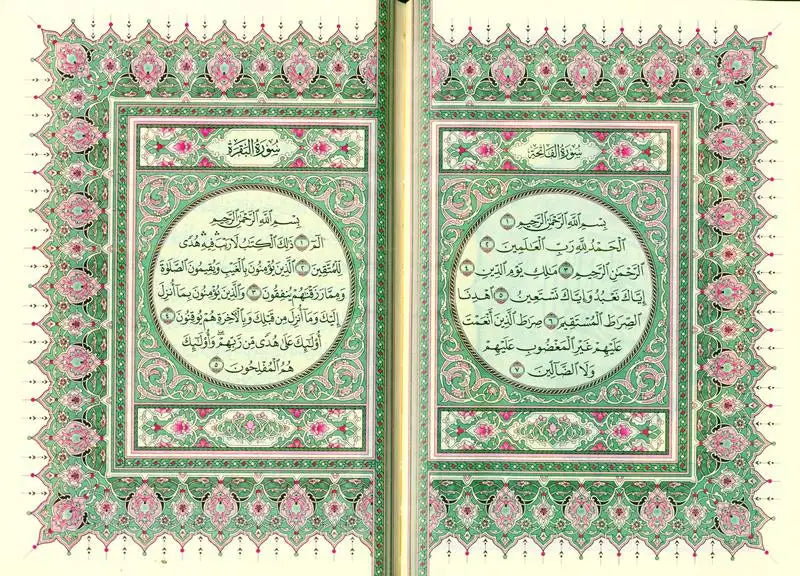 سُورَةُ الفَاتِحَةِ
بِسْمِ ٱللَّهِ ٱلرَّحْمَٰنِ ٱلرَّحِيمِ ١
ٱلْحَمْدُ لِلَّهِ رَبِّ ٱلْعَٰلَمِينَ ٢
ٱلرَّحْمَٰنِ ٱلرَّحِيمِ ٣ مَٰلِكِ يَوْمِ ٱلدِّينِ ٤
إِيَّاكَ نَعْبُدُ وَإِيَّاكَ نَسْتَعِينُ ٥ ٱهْدِنَا
ٱلصِّرَٰطَ ٱلْمُسْتَقِيمَ ٦ صِرَٰطَ ٱلَّذِينَ أَنْعَمْتَ
عَلَيْهِمْ غَيْرِ ٱلْمَغْضُوبِ عَلَيْهِمْ
وَلَا ٱلضَّآلِّينَ ٧
سُورَةُ البَقَرَةِ
بِسْمِ ٱللَّهِ ٱلرَّحْمَٰنِ ٱلرَّحِيمِ
الٓمٓ ١ ذَٰلِكَ ٱلْكِتَٰبُ لَا رَيْبَ ۛ فِيهِ ۛ هُدًى
لِّلْمُتَّقِينَ ٢ ٱلَّذِينَ يُؤْمِنُونَ بِٱلْغَيْبِ وَيُقِيمُونَ ٱلصَّلَوٰةَ
وَمِمَّا رَزَقْنَٰهُمْ يُنفِقُونَ ٣ وَٱلَّذِينَ يُؤْمِنُونَ بِمَآ أُنزِلَ
إِلَيْكَ وَمَآ أُنزِلَ مِن قَبْلِكَ وَبِٱلْأٓخِرَةِ هُمْ يُوقِنُونَ ٤
أُو۟لَٰٓئِكَ عَلَىٰ هُدًى مِّن رَّبِّهِمْ ۖ وَأُو۟لَٰٓئِكَ
هُمُ ٱلْمُفْلِحُونَ ٥